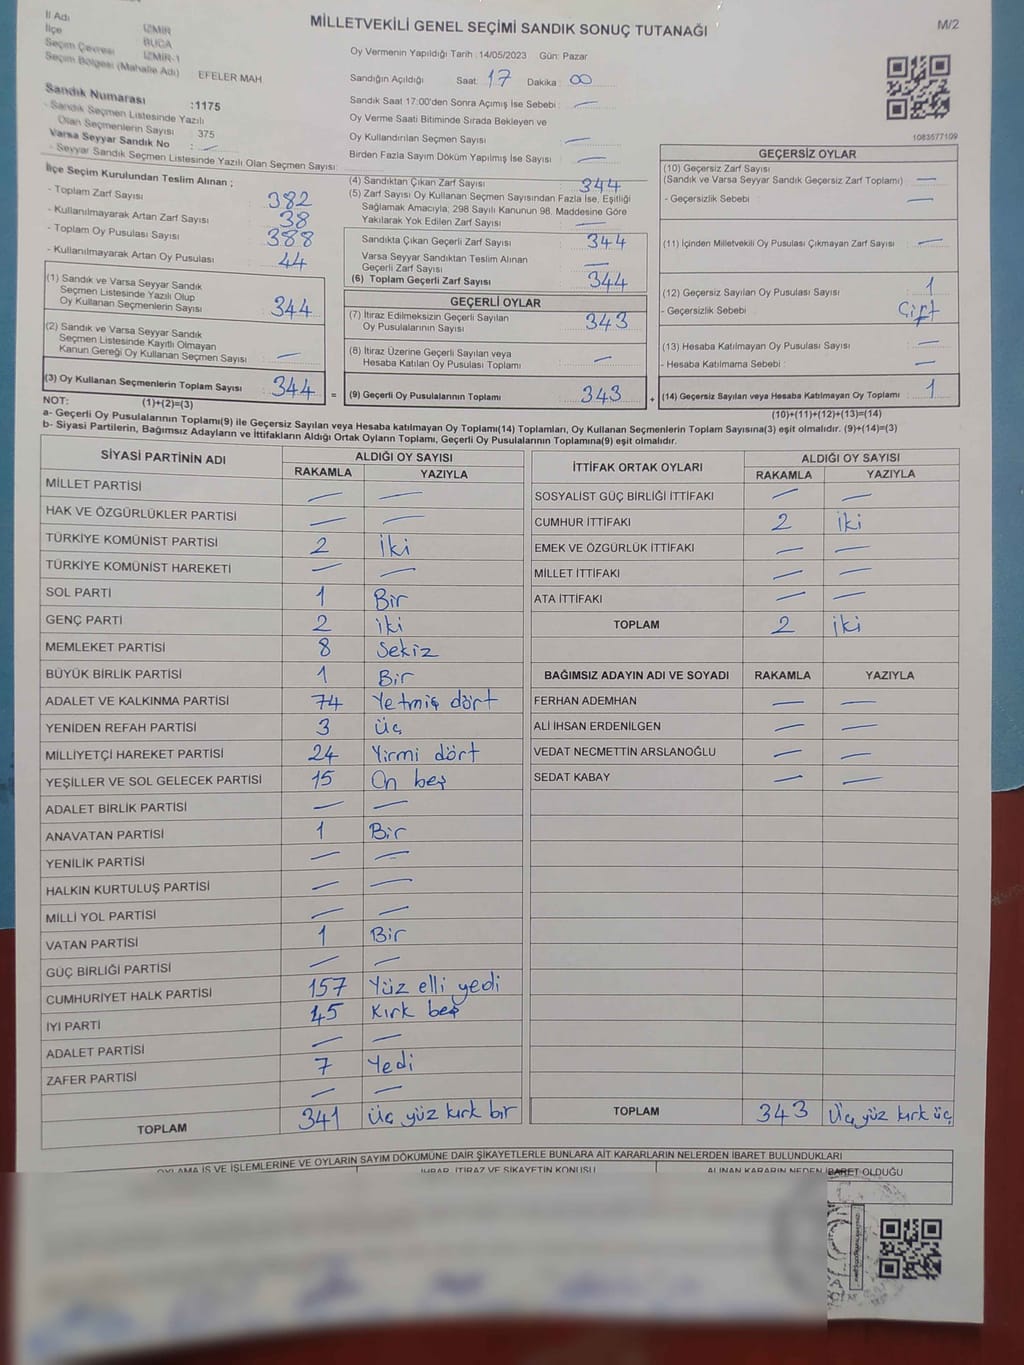 MİLLETVEKİLİ GENEL SEÇİMİ SANDIK SONUÇ TUTANAĞI
M/2
İl Adı İZMİR
İlçe BUCA
Seçim Çevresi İZMİR-1
Seçim Bölgesi (Mahalle Adı) EFELER MAH
Sandık Numarası :1175
- Sandık Seçmen Listesinde Yazılı
Olan Seçmenlerin Sayısı : 375
Varsa Seyyar Sandık No : —
- Seyyar Sandık Seçmen Listesinde Yazılı Olan Seçmen Sayısı:
Oy Vermenin Yapıldığı Tarih :14/05/2023 Gün: Pazar
Sandığın Açıldığı Saat: 17 Dakika : 00
Sandık Saat 17:00'den Sonra Açımış İse Sebebi : —
Oy Verme Saati Bitiminde Sırada Bekleyen ve
Oy Kullandırılan Seçmen Sayısı : —
Birden Fazla Sayım Döküm Yapılmış İse Sayısı : —
1083577109
İlçe Seçim Kurulundan Teslim Alınan ;
- Toplam Zarf Sayısı : 382
- Kullanılmayarak Artan Zarf Sayısı : 38
- Toplam Oy Pusulası Sayısı : 388
- Kullanılmayarak Artan Oy Pusulası : 44
(1) Sandık ve Varsa Seyyar Sandık
Seçmen Listesinde Yazılı Olup
Oy Kullanan Seçmenlerin Sayısı : 344
(2) Sandık ve Varsa Seyyar Sandık
Seçmen Listesinde Kayıtlı Olmayan
Kanun Gereği Oy Kullanan Seçmen Sayısı : —
(3) Oy Kullanan Seçmenlerin Toplam Sayısı : 344
(4) Sandıktan Çıkan Zarf Sayısı : 344
(5) Zarf Sayısı Oy Kullanan Seçmen Sayısından Fazla İse, Eşitliği
Sağlamak Amacıyla, 298 Sayılı Kanunun 98. Maddesine Göre
Yakılarak Yok Edilen Zarf Sayısı : —
Sandıkta Çıkan Geçerli Zarf Sayısı : 344
Varsa Seyyar Sandıktan Teslim Alınan
Geçerli Zarf Sayısı : —
(6) Toplam Geçerli Zarf Sayısı : 344
GEÇERLİ OYLAR
(7) İtiraz Edilmeksizin Geçerli Sayılan
Oy Pusulalarının Sayısı : 343
(8) İtiraz Üzerine Geçerli Sayılan veya
Hesaba Katılan Oy Pusulası Toplamı : —
= (9) Geçerli Oy Pusulalarının Toplamı : 343
GEÇERSİZ OYLAR
(10) Geçersiz Zarf Sayısı
(Sandık ve Varsa Seyyar Sandık Geçersiz Zarf Toplamı) : —
- Geçersizlik Sebebi : —
(11) İçinden Milletvekili Oy Pusulası Çıkmayan Zarf Sayısı : —
(12) Geçersiz Sayılan Oy Pusulası Sayısı : 1
- Geçersizlik Sebebi : Çift
(13) Hesaba Katılmayan Oy Pusulası Sayısı : —
- Hesaba Katılmama Sebebi : —
+ (14) Geçersiz Sayılan veya Hesaba Katılmayan Oy Toplamı : 1
NOT: (1)+(2)=(3) (10)+(11)+(12)+(13)=(14)
a- Geçerli Oy Pusulalarının Toplamı(9) ile Geçersiz Sayılan veya Hesaba katılmayan Oy Toplamı(14) Toplamları, Oy Kullanan Seçmenlerin Toplam Sayısına(3) eşit olmalıdır. (9)+(14)=(3)
b- Siyasi Partilerin, Bağımsız Adayların ve İttifakların Aldığı Ortak Oyların Toplamı, Geçerli Oy Pusulalarının Toplamına(9) eşit olmalıdır.
SİYASİ PARTİNİN ADI ALDIĞI OY SAYISI
RAKAMLA YAZIYLA
MİLLET PARTİSİ — —
HAK VE ÖZGÜRLÜKLER PARTİSİ — —
TÜRKİYE KOMÜNİST PARTİSİ 2 iki
TÜRKİYE KOMÜNİST HAREKETİ — —
SOL PARTİ 1 Bir
GENÇ PARTİ 2 iki
MEMLEKET PARTİSİ 8 Sekiz
BÜYÜK BİRLİK PARTİSİ 1 Bir
ADALET VE KALKINMA PARTİSİ 74 Yetmiş dört
YENİDEN REFAH PARTİSİ 3 üç
MİLLİYETÇİ HAREKET PARTİSİ 24 Yirmi dört
YEŞİLLER VE SOL GELECEK PARTİSİ 15 On beş
ADALET BİRLİK PARTİSİ — —
ANAVATAN PARTİSİ 1 Bir
YENİLİK PARTİSİ — —
HALKIN KURTULUŞ PARTİSİ — —
MİLLİ YOL PARTİSİ — —
VATAN PARTİSİ 1 Bir
GÜÇ BİRLİĞİ PARTİSİ — —
CUMHURİYET HALK PARTİSİ 157 Yüz elli yedi
İYİ PARTİ 45 Kırk beş
ADALET PARTİSİ — —
ZAFER PARTİSİ 7 Yedi
— —
TOPLAM 341 Üç yüz kırk bir
İTTİFAK ORTAK OYLARI ALDIĞI OY SAYISI
RAKAMLA YAZIYLA
SOSYALİST GÜÇ BİRLİĞİ İTTİFAKI — —
CUMHUR İTTİFAKI 2 iki
EMEK VE ÖZGÜRLÜK İTTİFAKI — —
MİLLET İTTİFAKI — —
ATA İTTİFAKI — —
TOPLAM 2 iki
BAĞIMSIZ ADAYIN ADI VE SOYADI RAKAMLA YAZIYLA
FERHAN ADEMHAN — —
ALİ İHSAN ERDENİLGEN — —
VEDAT NECMETTİN ARSLANOĞLU — —
SEDAT KABAY — —
TOPLAM 343 Üç yüz kırk üç
OYLAMA İŞ VE İŞLEMLERİNE VE OYLARIN SAYIM DÖKÜMÜNE DAİR ŞİKAYETLERLE BUNLARA AİT KARARLARIN NELERDEN İBARET BULUNDUKLARI
İHBAR, İTİRAZ VE ŞİKAYETİN KONUSU ALINAN KARARIN NEDEN İBARET OLDUĞU